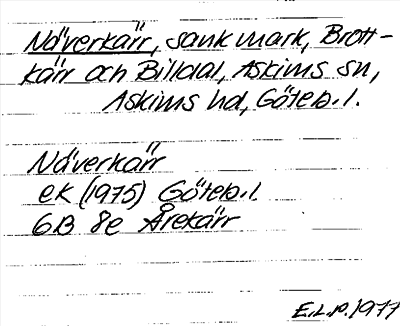 Näverkärr, sank mark, Brott-
kärr och Billdal, Askims sn,
Askims hd, Göteb. l.
Näverkärr
ek (1975) Göteb. l.
6B 8e Årekärr
E.L.P. 1977